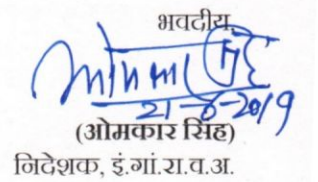 भवदीय
21-6-2019
(ओमकार सिंह)
निदेशक, इं.गां.रा.व.अ.